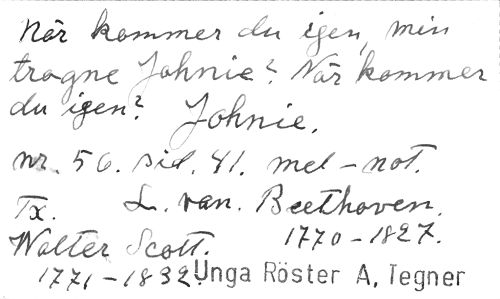 När kommer du igen, min
trogne Johnie? När kommer
du igen? Johnie.
nr. 50. sid. 41. mel-not.
Tx. L. van. Beethoven.
Walter Scott. 1770-1827.
1771-1832. Unga Röster A, Tegner